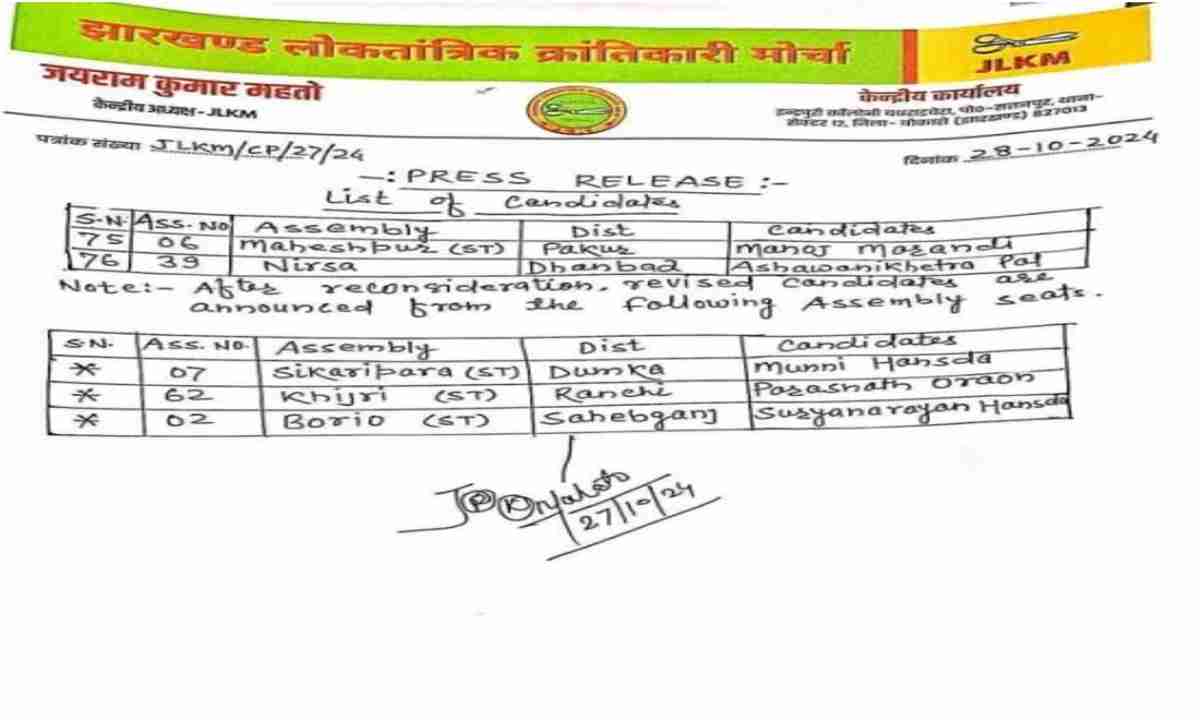 झारखण्ड लोकतांत्रिक क्रांतिकारी मोर्चा
JLKM
जयराम कुमार महतो
केन्द्रीय अध्यक्ष-JLKM
केन्द्रीय कार्यालय
इन्द्रपुरी कॉलोनी पो०-सतनपुर, थाना-
सेक्टर 12, जिला- बोकारो (झारखण्ड) 827013
पत्रांक संख्या JLKM/CP/27/24
दिनांक 28-10-2024
-: PRESS RELEASE :-
List of Candidates
S.N. Ass. No Assembly Dist Candidates
75 06 Maheshpur (ST) Pakur Manoj Marandi
76 39 Nirsa Dhanbad Ashawanikhetra Pal
Note:- After reconsideration, revised candidates are
announced from the following Assembly seats.
S.N. Ass. No. Assembly Dist Candidates
* 07 Sikaripara (ST) Dumka Munni Hansda
* 62 Khijri (ST) Ranchi Parasnath Oraon
* 02 Borio (ST) Sahebganj Suryanarayan Hansda
JPKMahato
27/10/24